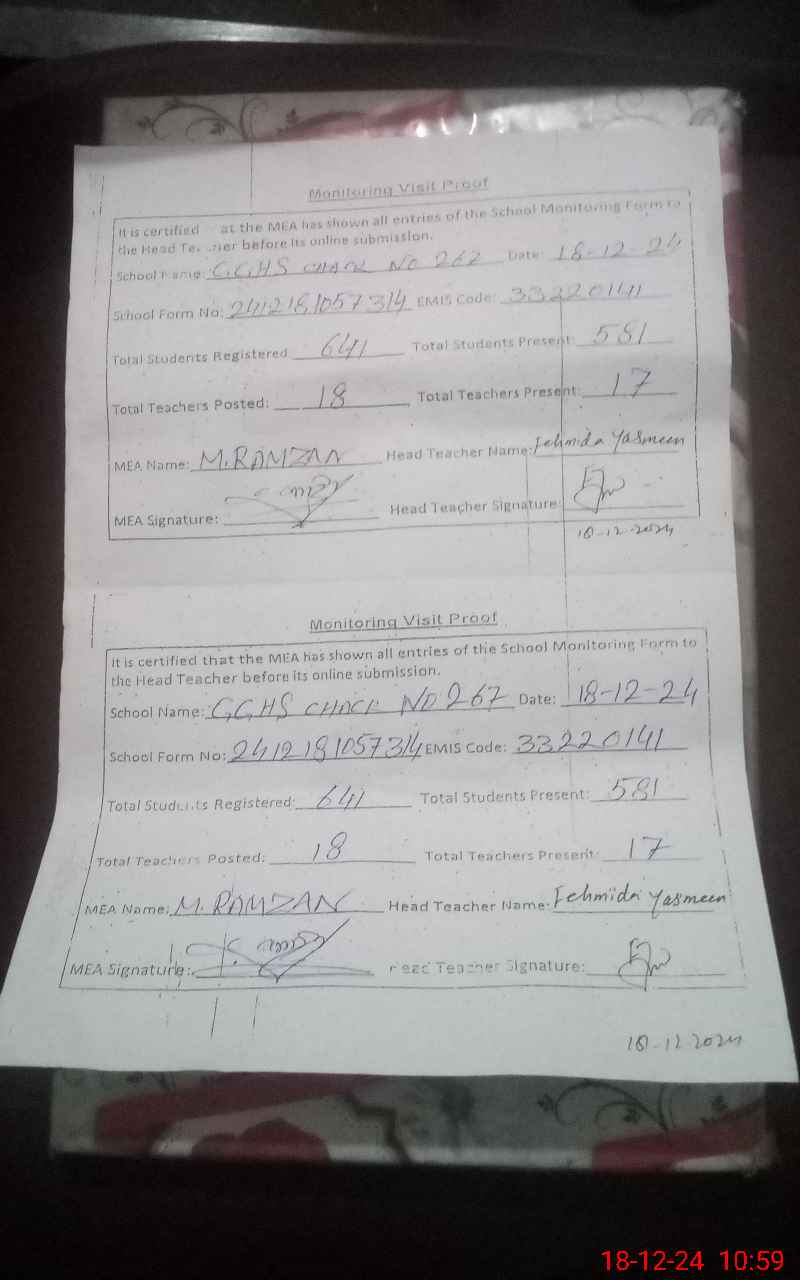 Monitoring Visit Proof
It is certified at the MEA has shown all entries of the School Monitoring Form to
the Head Te.. ..her before its online submission.
School Name: G.G.H.S CHACK NO 262 Date: 18-12-24
School Form No: 2412181057314 EMIS Code: 33220141
Total Students Registered 641 Total Students Present: 581
Total Teachers Posted: 18 Total Teachers Present: 17
MEA Name: M.RAMZAN Head Teacher Name: Fehmida Yasmeen
MEA Signature: Head Teacher Signature:
18-12-2024
Monitoring Visit Proof
It is certified that the MEA has shown all entries of the School Monitoring Form to
the Head Teacher before its online submission.
School Name: G.G.H.S CHACK NO 267 Date: 18-12-24
School Form No: 2412181057314 EMIS Code: 33220141
Total Students Registered: 641 Total Students Present: 581
Total Teachers Posted: 18 Total Teachers Present: 17
MEA Name: M. RAMZAN Head Teacher Name: Fehmida Yasmeen
MEA Signature: Head Teacher Signature:
18-12-2024
18-12-24 10:59